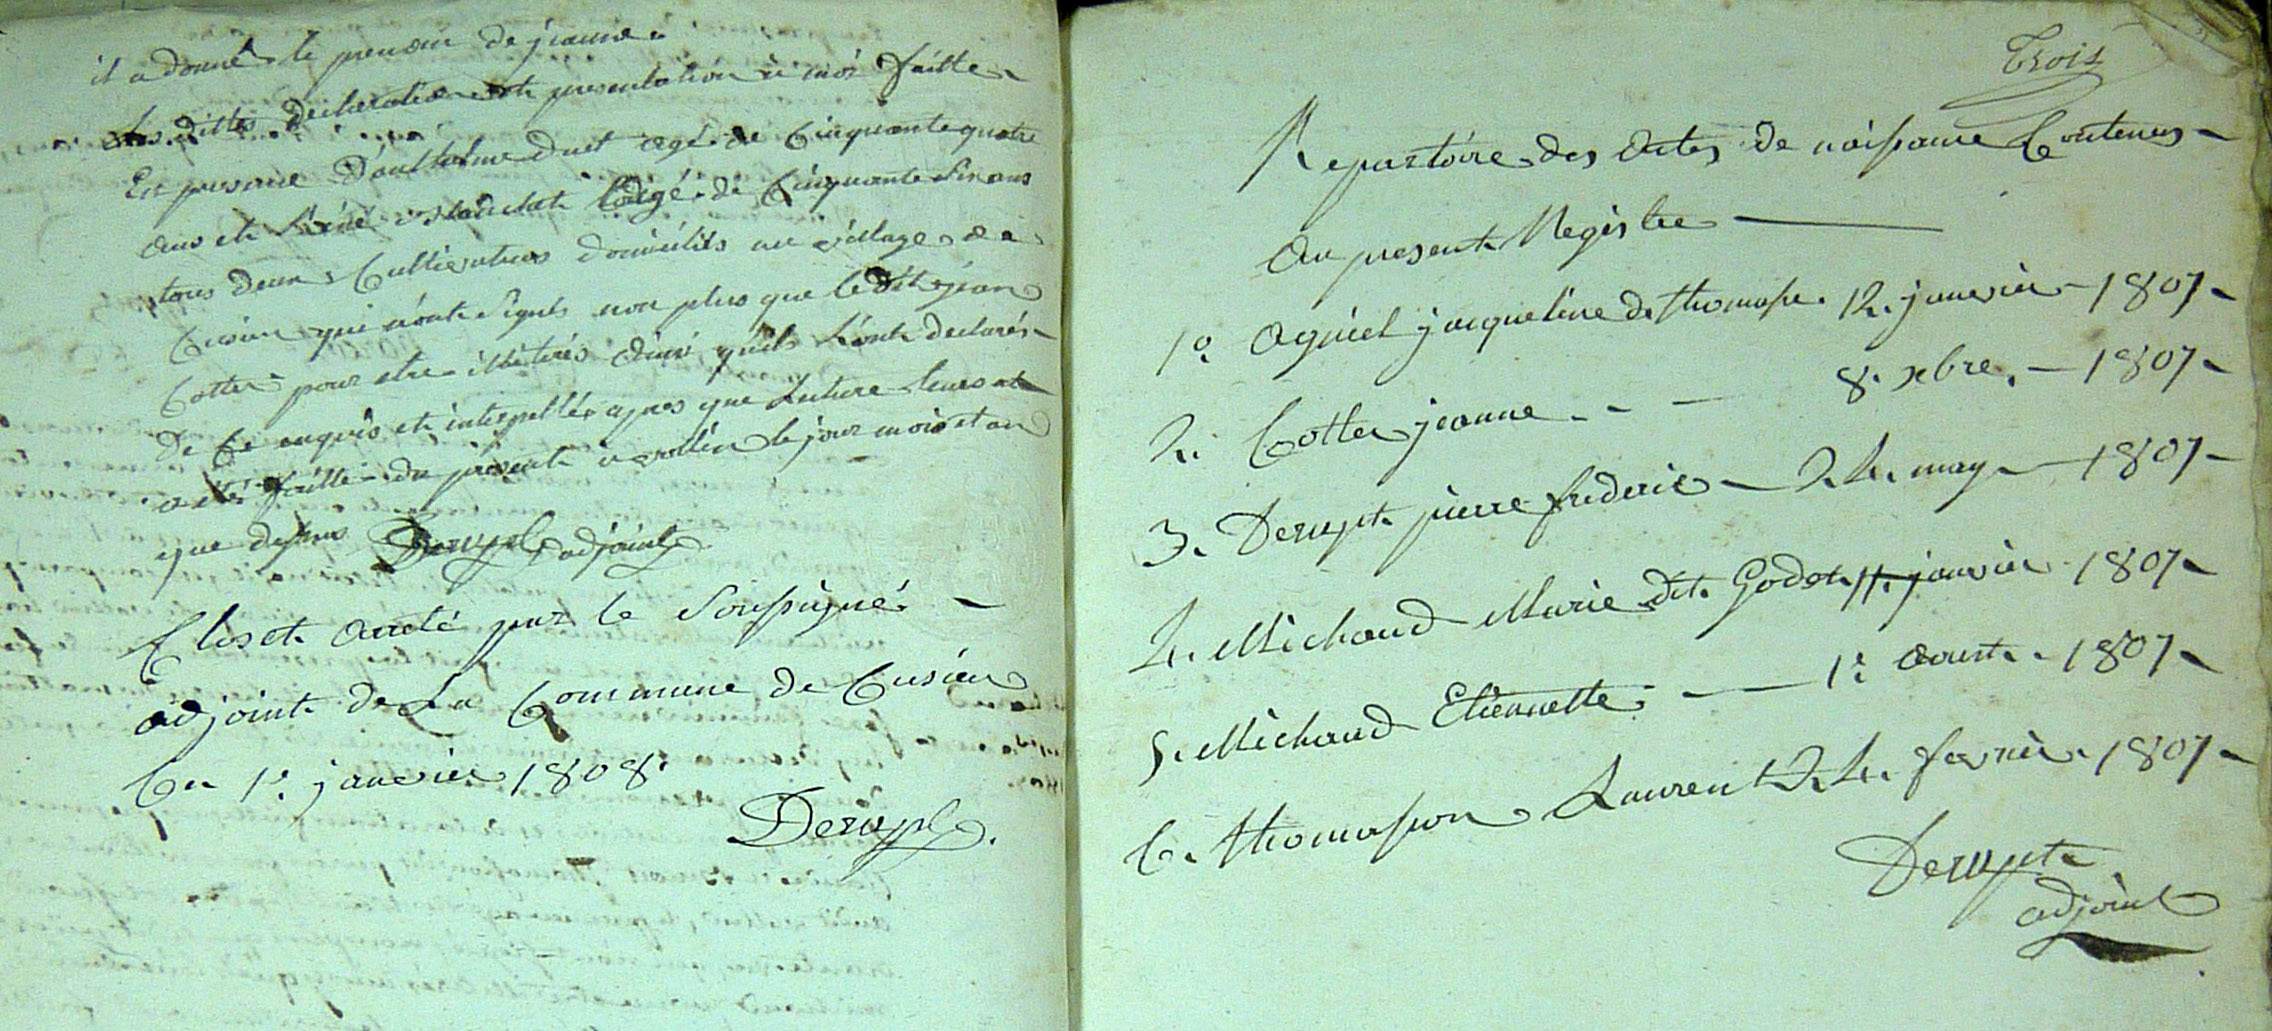 il a donné le prenom de jeanne.
Les dittes declaration et presentation à moi faitte
En presence Danthelme Duet agé de Cinquante quatre
ans et René agé de Cinquante Six ans
tous deux Cultivateurs domiciliés au village de
Cusieu qui n'ont Signés non plus que le dit jean
Cottier pour etre illiterés ainsi quils L'ont declarés
De Ce enquis et interpellés apres que Lecture leurs at
a etée faitte du present a rollin le jour mois et an
que dessus Derupt adjoint
Clos et Arreté par le Soussigné
adjoint de La Commune de Cusieu
Ce 1er janvier 1808
Derupt.
Trois
Repartoire des Actes de naissance Contenus
Au present Registre
1° Agniel jacqueline d. thomasse. 12. janvier 1807
2. Cottier jeanne - - - 8. xbre. 1807
3. Derupt pierre frederic - 24. may 1807
4. Michaud Marie dit Godet 11. janvier 1807
5. Michaud Etiennette - 1er Aoust. 1807
6. thomasson Laurent 24. fevrier. 1807
Derupt
adjoint